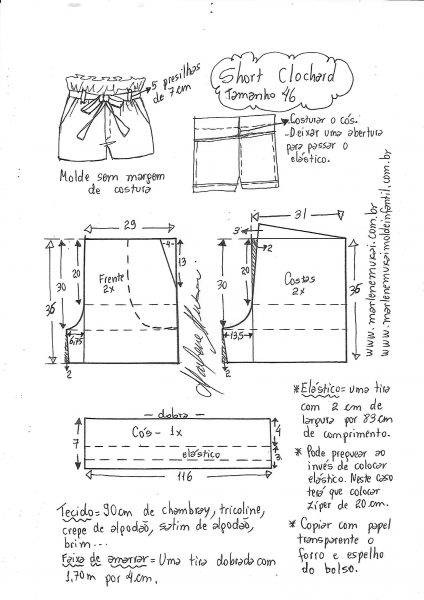 Short Clochard
Tamanho 46
5 presilhas
de 7 cm
Costurar o cós.
- Deixar uma abertura
para passar o
elástico.
Molde sem margem
de costura
29
4
13
20
30
36
6,75
2
Frente
2x
31
3
2
20
30
36
13,5
2
Costas
2x
Marlene Mukai
www.marlenemukai.com.br
www.marlenemukaimoldeinfantil.com.br
dobra
Cós - 1x
elástico
7
4
3
116
* Elástico = uma tira
com 2 cm de
largura por 83 cm
de comprimento.
* Pode preguear ao
invés de colocar
elástico. Neste caso
terá que colocar
zíper de 20 cm.
* Copiar com papel
transparente o
forro e espelho
do bolso.
Tecido = 90 cm de chambray, tricoline,
crepe de algodão, satim de algodão,
brim...
Faixa de amarrar = Uma tira dobrada com
1,70 m por 4 cm.